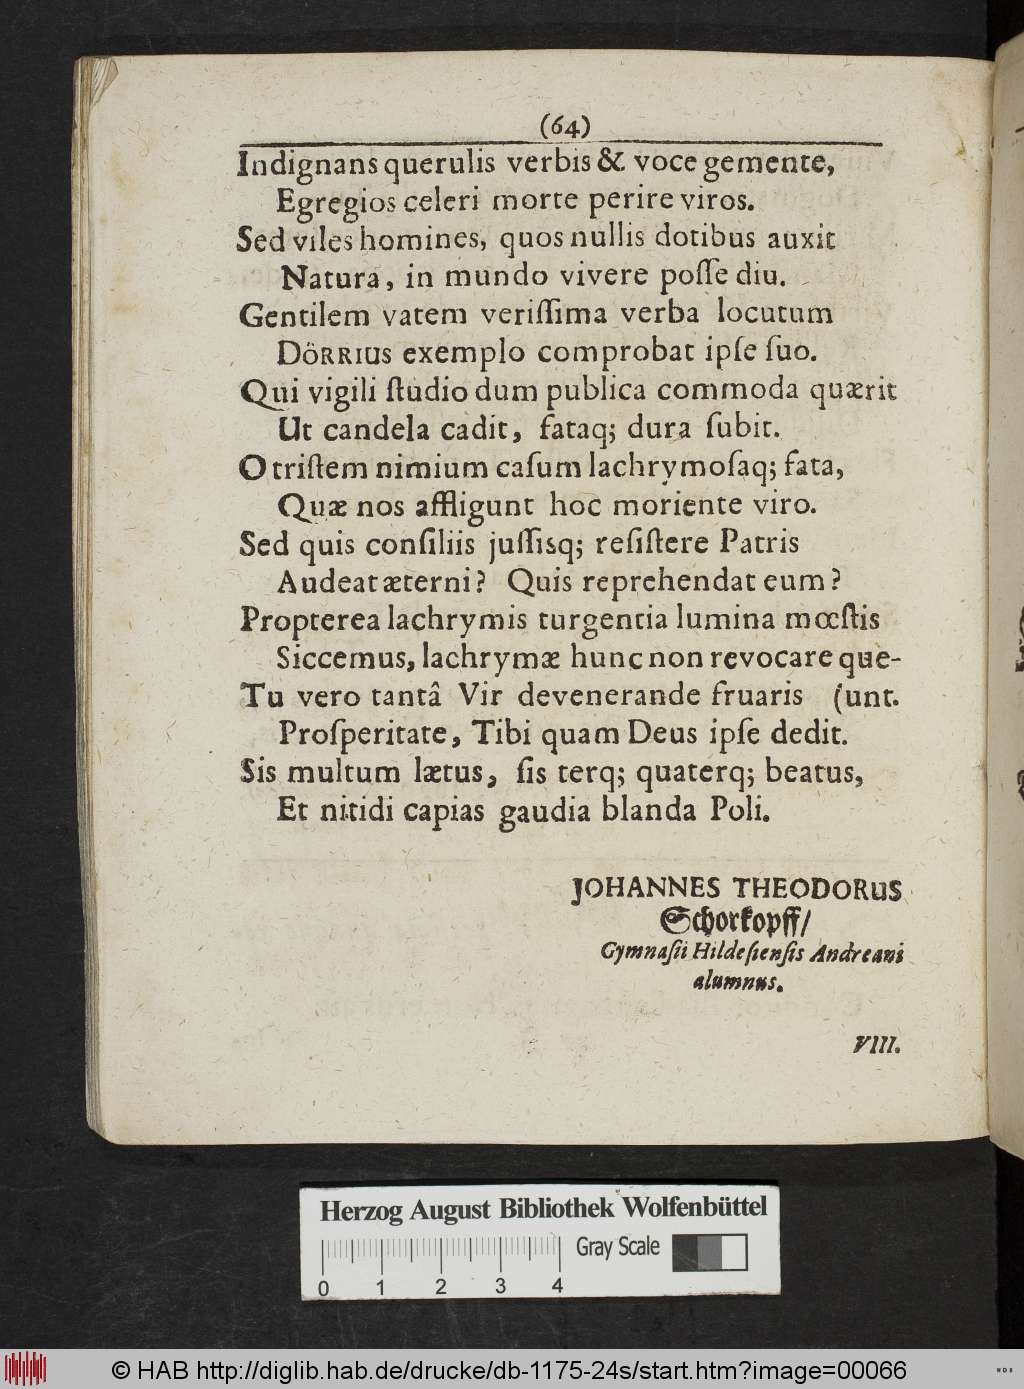 (64)
Indignans querulis verbis & voce gemente,
Egregios celeri morte perire viros.
Sed viles homines, quos nullis dotibus auxit
Natura, in mundo vivere poſſe diu.
Gentilem vatem veriſſima verba locutum
DÖRRIUS exemplo comprobat ipſe ſuo.
Qui vigili ſtudio dum publica commoda quærit
Ut candela cadit, fataq; dura ſubit.
O triſtem nimium caſum lachrymoſaq; fata,
Quæ nos affligunt hoc moriente viro.
Sed quis conſiliis juſſisq; reſiſtere Patris
Audeat æterni? Quis reprehendat eum?
Propterea lachrymis turgentia lumina mœſtis
Siccemus, lachrymæ hunc non revocare que-
Tu vero tantâ Vir devenerande fruaris (unt.
Proſperitate, Tibi quam Deus ipſe dedit.
Sis multum lætus, ſis terq; quaterq; beatus,
Et nitidi capias gaudia blanda Poli.
JOHANNES THEODORUS
Schorkopff/
Gymnaſii Hildeſienſis Andreani
alumnus.
VIII.
Herzog August Bibliothek Wolfenbüttel
Gray Scale
0 1 2 3 4
© HAB http://diglib.hab.de/drucke/db-1175-24s/start.htm?image=00066